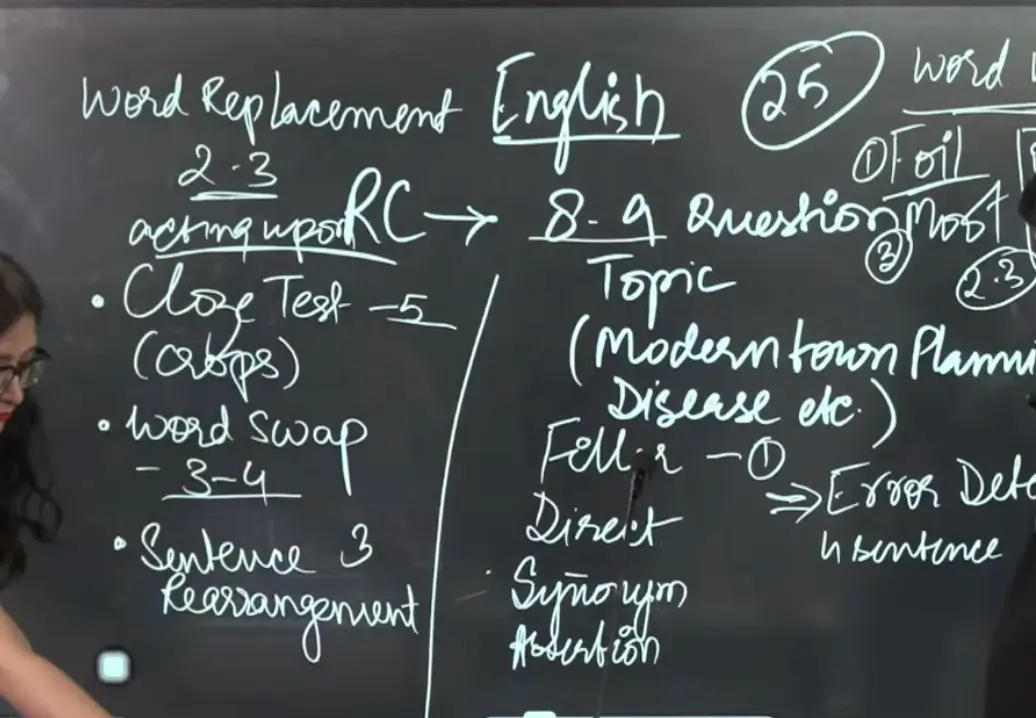 Word Replacement
2-3
acting upon
• Cloze Test - 5
(Crops)
• Word Swap
- 3-4
• Sentence 3
Rearrangement
English
25
RC → 8-9 Question
Topic
(Modern town Planni
Disease etc.)
Filler - ①
Direct
Synonym
Assertion
Word
① Foil
Most
③
2-3
⇒ Error Dete
4 sentence